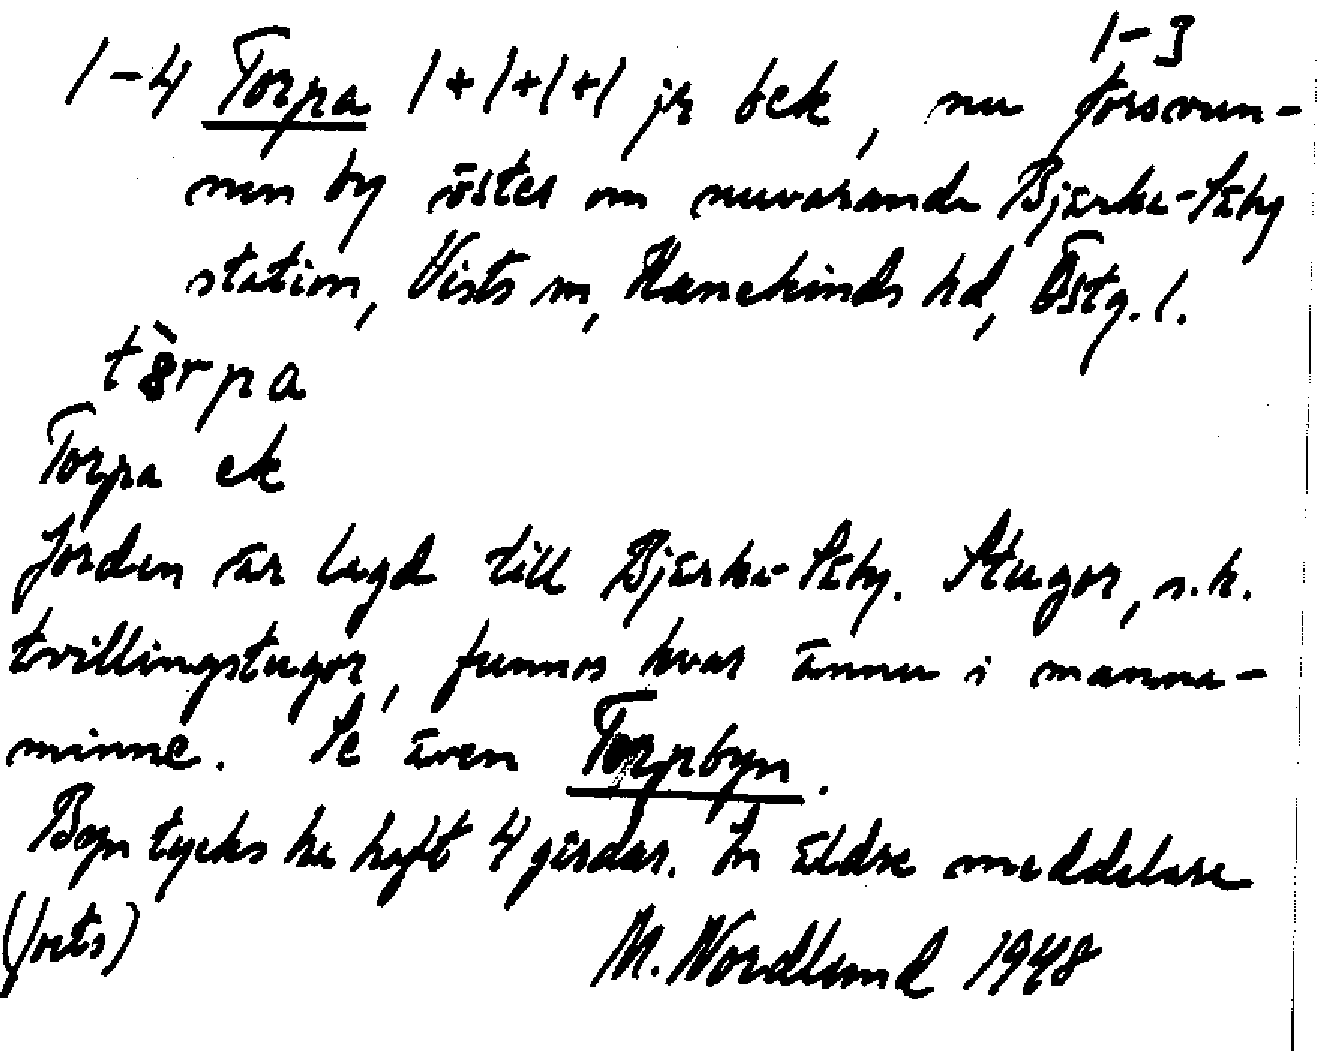 1-3
1-4 Torpa 1+1+1+1 jr bek, nu försvun-
nen by öster om nuvarande Bjärka-Säby
station, Vists sn, Hanekinds hd, Östg. l.
Torpa ek
Jorden är lagd till Bjärka-Säby. Stugor, s.k.
tvillingstugor, funnos kvar ännu i manna-
minne. Se även Torpbyn.
Byn tycks ha haft 4 gårdar. En äldre meddelare
(forts) M. Nordlund 1948